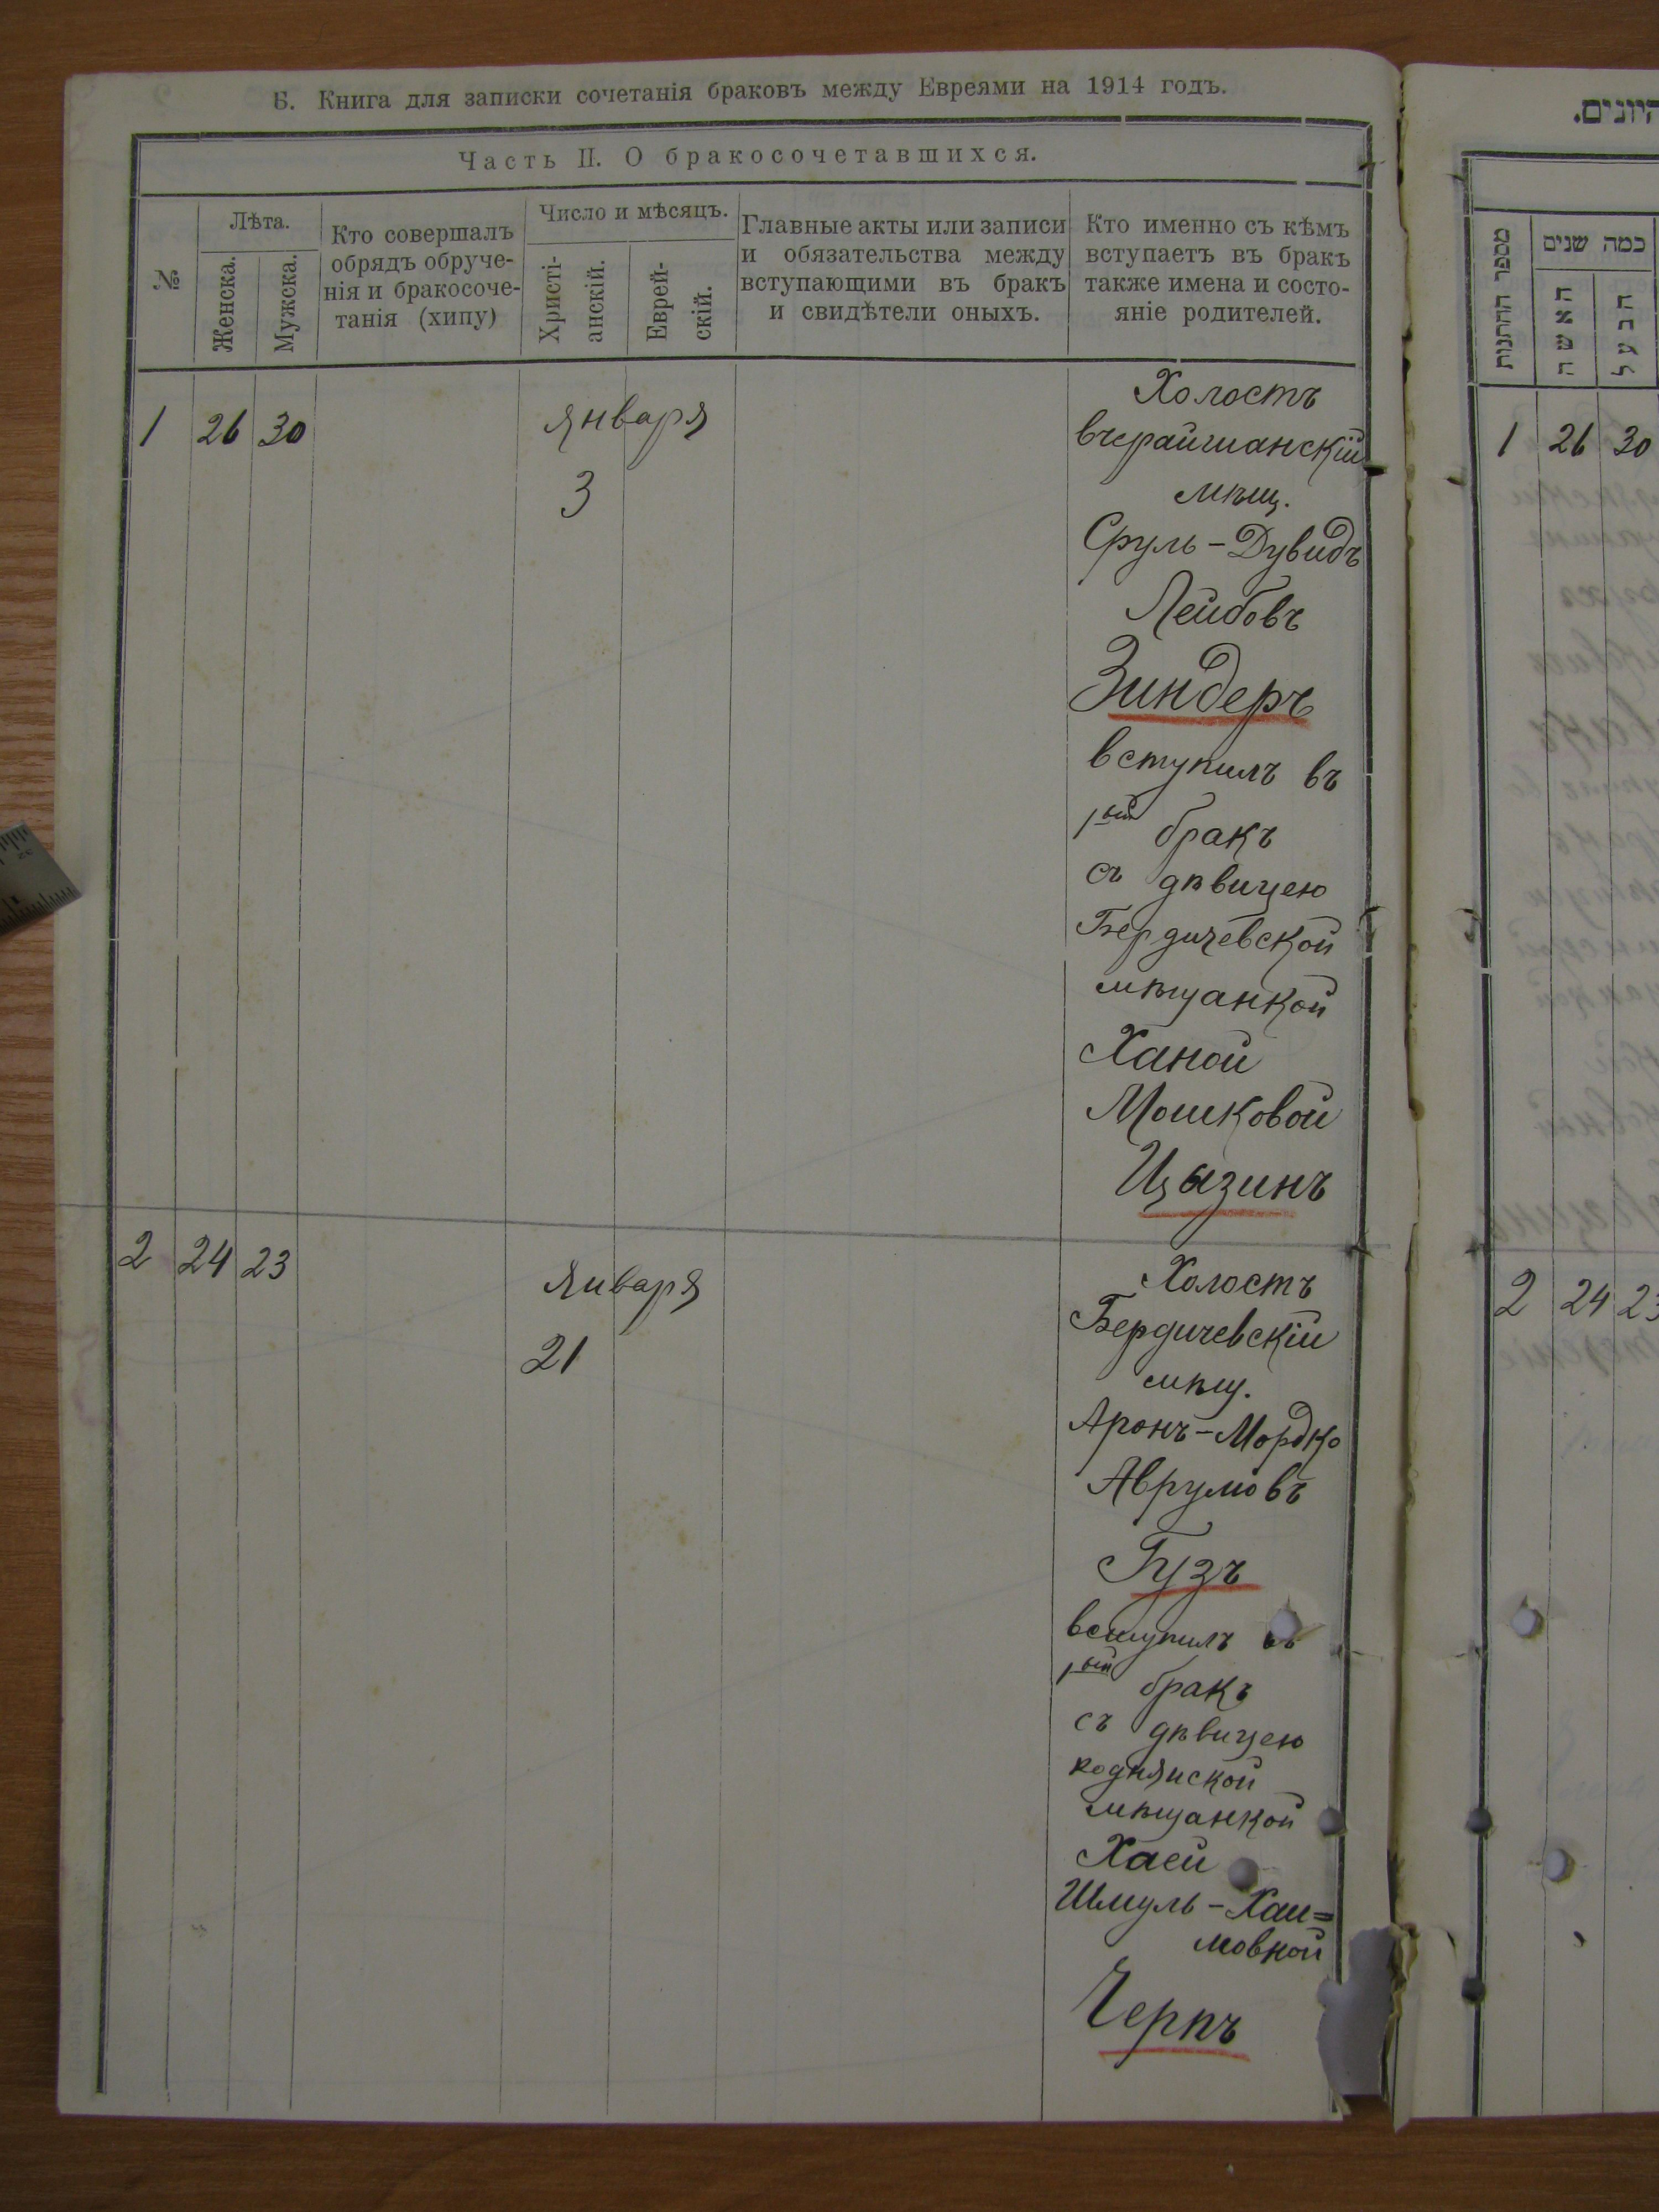 Б. Книга для записки сочетанія браковъ между Евреями на 1914 годъ.
Часть II. О бракосочетавшихся.
№
Лѣта.
Женска.
Мужска.
Кто совершалъ
обрядъ обруче-
нія и бракосоче-
танія (хипу)
Число и мѣсяцъ.
Христі-
анскій.
Еврей-
скій.
Главные акты или записи
и обязательства между
вступающими въ бракъ
и свидѣтели оныхъ.
Кто именно съ кѣмъ
вступаетъ въ бракъ
также имена и состо-
яніе родителей.
1 26 30
января
3
Холостъ
вчерайшанскій
мѣщ.
Сруль-Дувидъ
Лейбовъ
Зиндеръ
вступилъ въ
1ый бракъ
съ дѣвицею
Бердичевской
мѣщанкой
Ханой
Мошковой
Цызинъ
2 24 23
Января
21
Холостъ
Бердичевскій
мѣщ.
Аронъ-Мордко
Аврумовъ
Гузъ
вступилъ въ
1ый бракъ
съ дѣвицею
коднянской
мѣщанкой
Хаей
Шмуль-Хаи=
мовной
Черпъ
היונים.
מספר החתנות
כמה שנים
האשה
הבעל
1 26 30
2 24 23